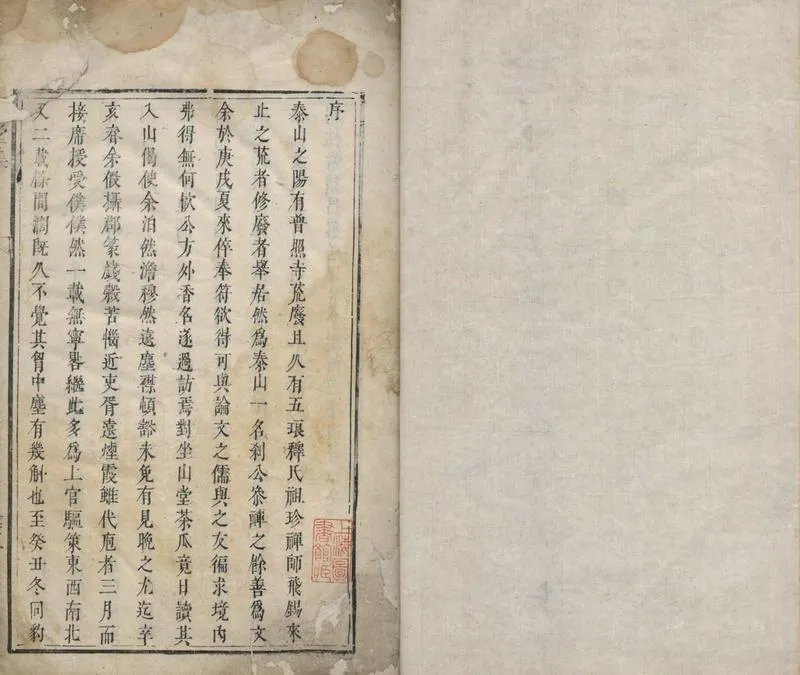 序
泰山之陽有普照寺荒廢且久有五琅釋氏祖珍禪師飛錫來
止之荒者修廢者舉居然為泰山一名刹公叅禪之餘善為文
余於庚戌夏來倅奉符欲得可與論文之儒與之友徧求境內
弗得無何歆公方外香名遂過訪焉對坐山堂茶瓜竟日讀其
入山偈使余泊然澹穆然遠塵襟頓豁未免有見晚之尤迄辛
亥春余假攝郡篆錢穀苦惱近吏胥遠煙霞雖代庖者三月而
接席授受僕僕然一載無寧晷繼此多為上官驅策東西南北
又二載餘間濶既久不覺其胷中塵有幾斛也至癸丑冬同豹
上海圖
書館藏